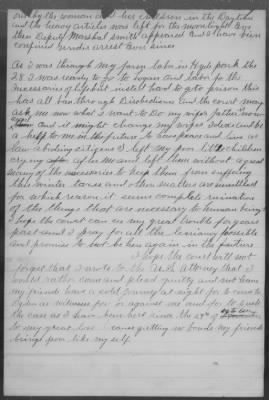 only by the woman and her children in the Daytime
and the heavy articles was left for the moonlight Eve
then Deputy Marshal Smith appeared and I have been
confined under arrest ever since
As I was through my farm labor in Hyde park the
28 I was ready to go to Logan and labor for the
necessaries of life but insted have to go to prison this
has all bee through Disobedience and the court may
ask me now what I want to Do my wifes father now
and it might change my wifes to be
a help to me in the future to have peace and live as
law abiding citizens I left my poor little children
crying after me and left them without a great
many of the necessaries to keep them from suffering
this winter taxes and other matters are unsettled
for which reason it seems complete ruination
of the things that are necessary to human beings
I hope the court can see my great trouble for years
past and I pray for all the leniancy possible
and promise to not be her again in the future
I hope the court will not
forget that I wrote to the U.S. Attorney that I
would rather come and plead guilty and not have
my friends have a cold Journey at night for to come to
Ogden as witnesses for or against me and for to push
the case as I have been here since the 29th of
to my great loss cause getting no bonds my friends
beings poor like my self